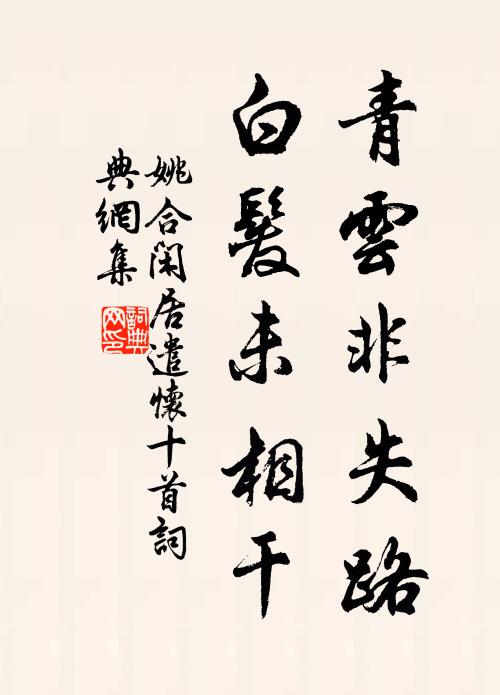 青雲非失路
白髮未相干
姚合閑居遣懷十首詞
典網集
詞典
网印